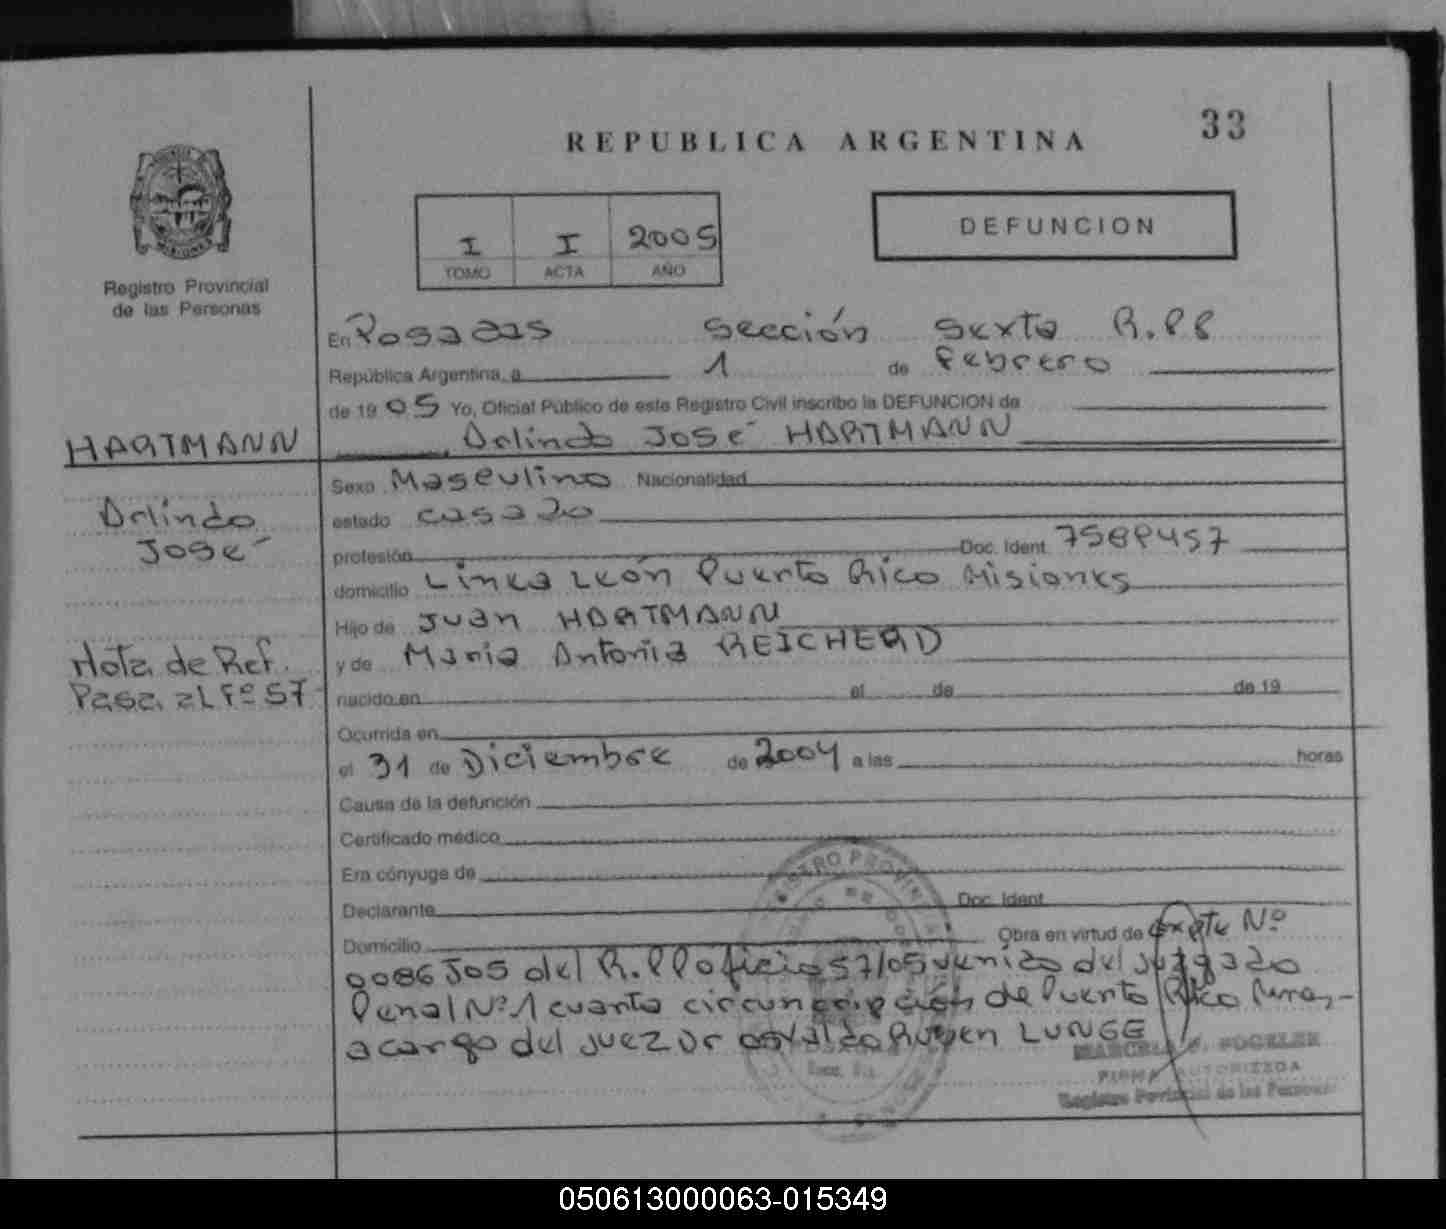 33
REPUBLICA ARGENTINA
MISIONES
I I 2005
TOMO ACTA AÑO
DEFUNCION
Registro Provincial
de las Personas
En Posadas Sección Sexta R.PP
República Argentina, a 1 de Febrero
de 19 05 Yo, Oficial Público de este Registro Civil inscribo la DEFUNCION de
HARTMANN
Arlindo José HARTMANN
Sexo Masculino Nacionalidad
Arlindo
José
estado casado
profesión Doc. Ident.
domicilio Linea León Puerto Rico Misiones
Hijo de Juan HARTMANN
y de Maria Antonia REICHERD
Nota de Ref.
Pasa al Fº 57
nacido en el de de 19
Ocurrida en
el 31 de Diciembre de 2004 a las horas
Causa de la defunción
Certificado médico
Era cónyuge de
Declarante Doc. Ident.
Domicilio Obra en virtud de expte Nº
0086 del R.PP oficio 57/05 venido del juzgado
Penal Nº 1 cuarta circunscripción de Puerto Rico
a cargo del juez Dr Osvaldo Ruben LUNGE
MARCELA
FIRMA AUTORIZADA
Registro Provincial de las Personas
050613000063-015349